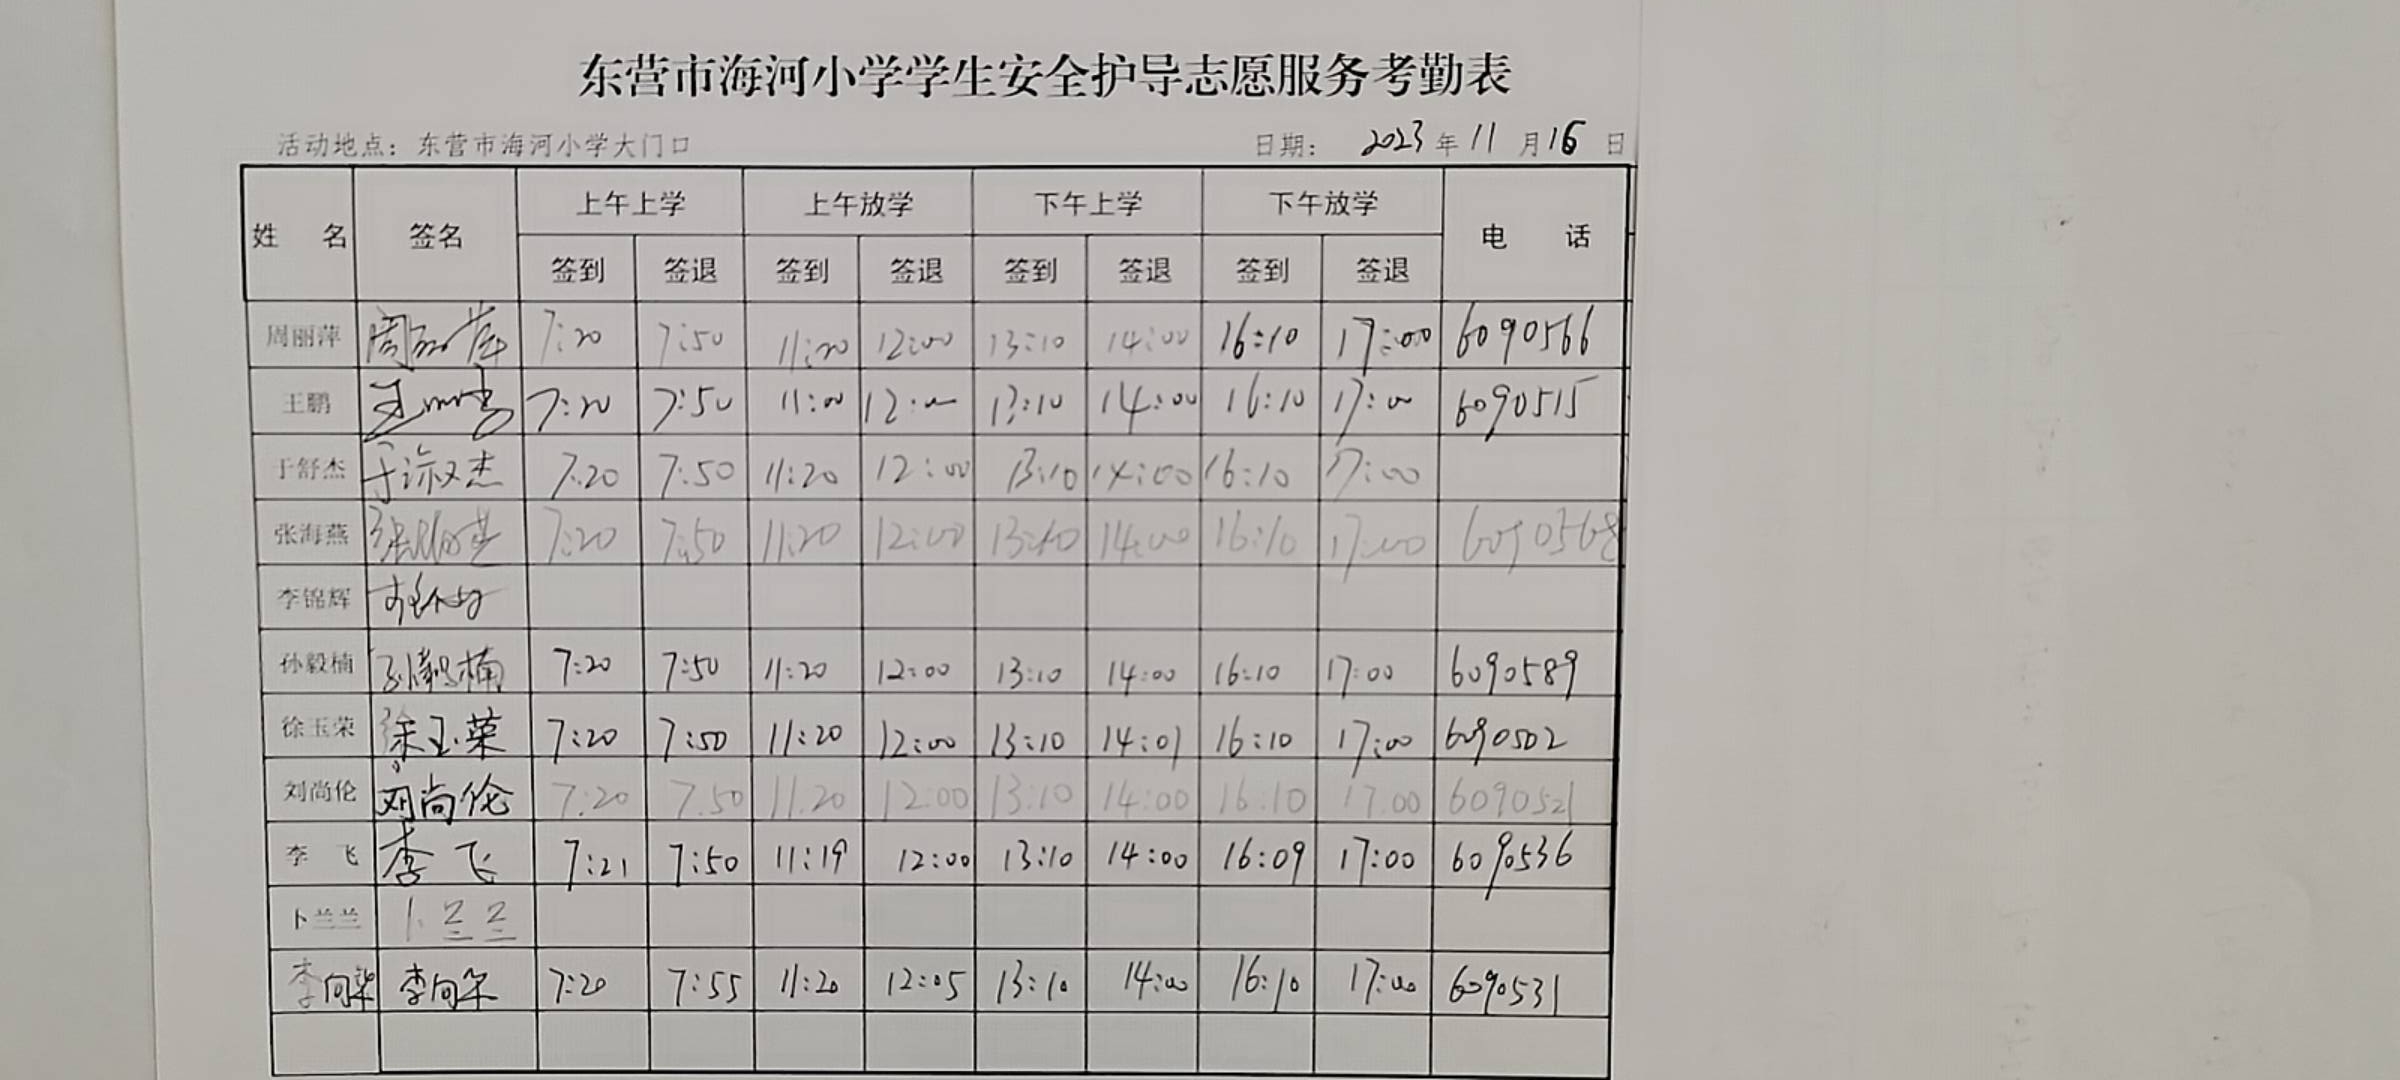 东营市海河小学学生安全护导志愿服务考勤表
活动地点：东营市海河小学大门口 日期： 2023 年 11 月 16 日
姓 名 签名 上午上学 上午放学 下午上学 下午放学 电 话
签到 签退 签到 签退 签到 签退 签到 签退
周丽萍 周丽萍 7:20 7:50 11:20 12:00 13:10 14:00 16:10 17:00 6090566
王鹏 王鹏 7:20 7:50 11:00 12:00 13:10 14:00 16:10 17:00 6090515
于舒杰 于舒杰 7:20 7:50 11:20 12:00 13:10 14:00 16:10 17:00
张海燕 张海燕 7:20 7:50 11:20 12:00 13:10 14:00 16:10 17:00 6090568
李锦辉
孙毅楠 孙毅楠 7:20 7:50 11:20 12:00 13:10 14:00 16:10 17:00 6090589
徐玉荣 徐玉荣 7:20 7:50 11:20 12:00 13:10 14:01 16:10 17:00 6090502
刘尚伦 刘尚伦 7:20 7.50 11.20 12:00 13:10 14:00 16:10 17.00 6090521
李 飞 李飞 7:21 7:50 11:19 12:00 13:10 14:00 16:09 17:00 6090536
卜兰兰 卜兰兰
李向 李向 7:20 7:55 11:20 12:05 13:10 14:00 16:10 17:00 6090531